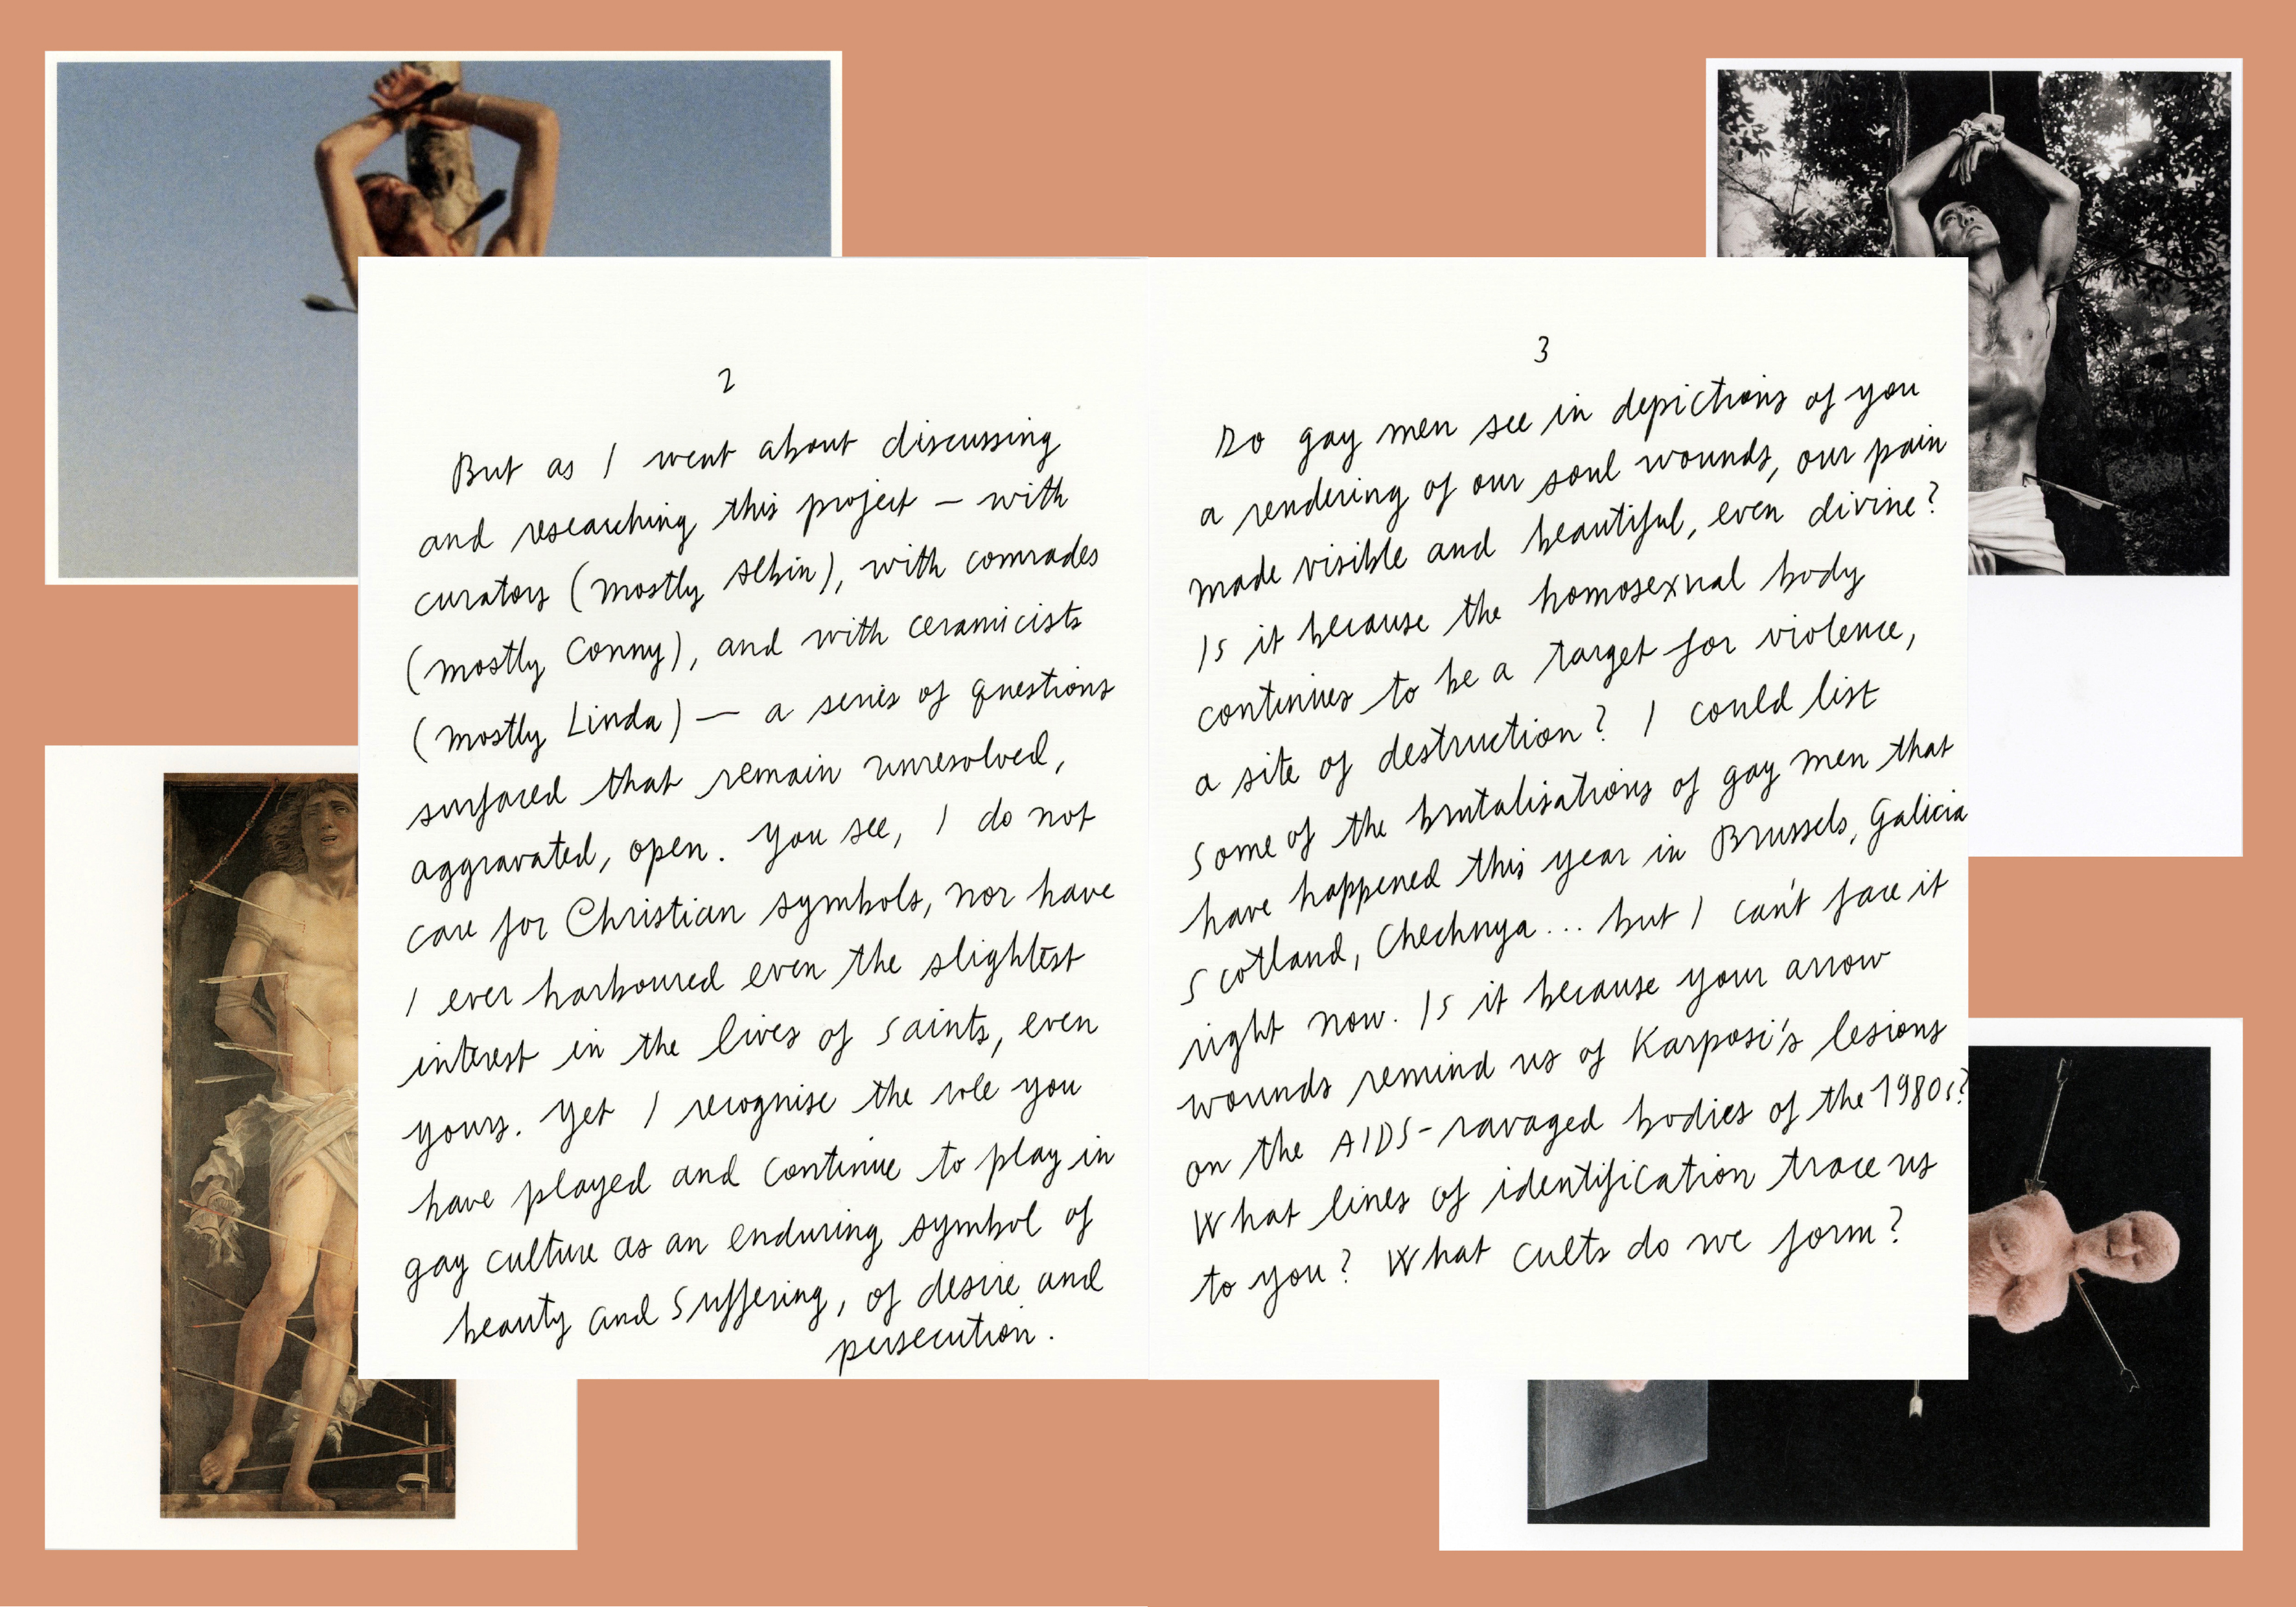 2
But as I went about discussing
and researching this project – with
curators (mostly Albin), with comrades
(mostly Conny), and with ceramicists
(mostly Linda) — a series of questions
surfaced that remain unresolved,
aggravated, open. You see, I do not
care for Christian symbols, nor have
I ever harboured even the slightest
interest in the lives of saints, even
yours. Yet I recognise the role you
have played and continue to play in
gay culture as an enduring symbol of
beauty and suffering, of desire and
persecution.
3
Do gay men see in depictions of you
a rendering of our soul wounds, our pain
made visible and beautiful, even divine?
Is it because the homosexual body
continues to be a target for violence,
a site of destruction? I could list
some of the brutalisations of gay men that
have happened this year in Brussels, Galicia
Scotland, Chechnya... but I can't face it
right now. Is it because your arrow
wounds remind us of Karposi's lesions
on the AIDS-ravaged bodies of the 1980s?
What lines of identification trace us
to you? What cults do we form?